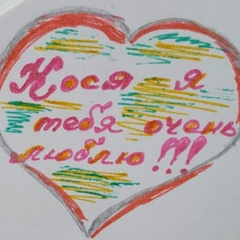 Кося - я
тебя очень
люблю!!!